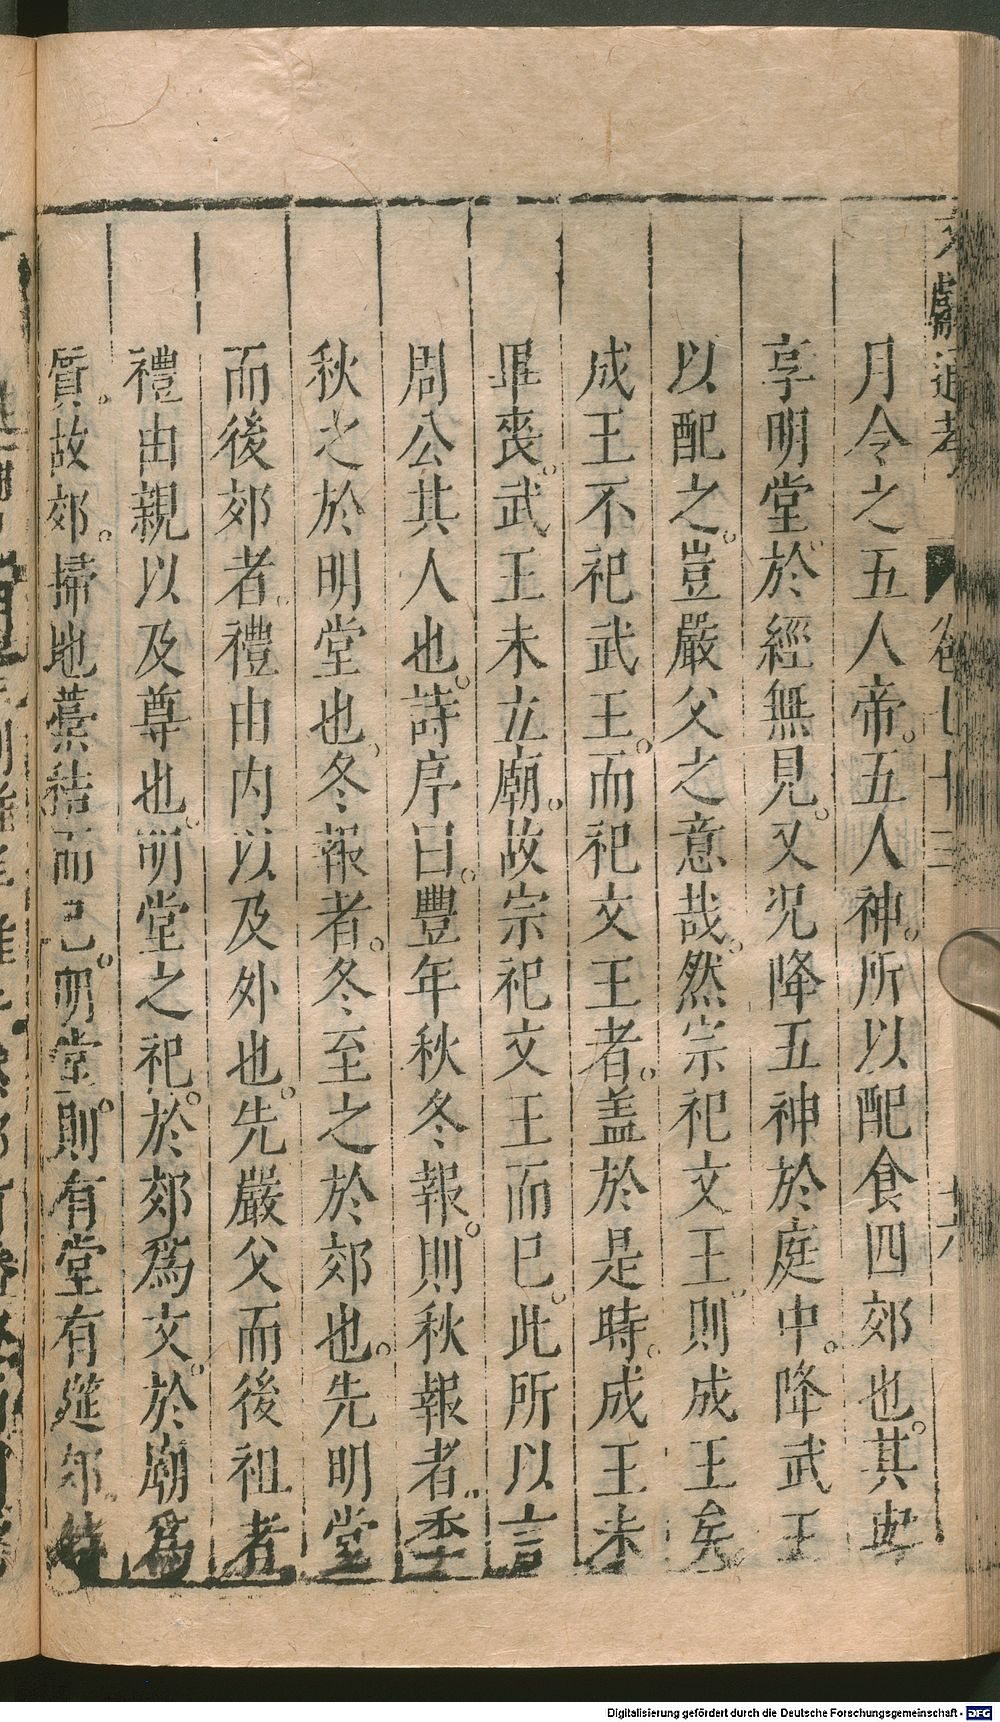 文獻通考 卷七十三 十六
月令之五人帝。五人神。所以配食四郊也。其與
享明堂。於經無見。又況降五神於庭中。降武王
以配之。豈嚴父之意哉。然宗祀文王。則成王矣。
成王不祀武王。而祀文王者。盖於是時。成王未
畢喪。武王未立廟。故宗祀文王而已。此所以言
周公其人也。詩序曰。豐年秋冬報。則秋報者。季
秋之於明堂也。冬報者。冬至之於郊也。先明堂
而後郊者。禮由内以及外也。先嚴父而後祖者
禮由親以及尊也。明堂之祀。於郊爲文。於廟爲
質。故郊。掃地藁秸而已。明堂。則有堂有筵。郊。特
Digitalisierung gefördert durch die Deutsche Forschungsgemeinschaft - DFG